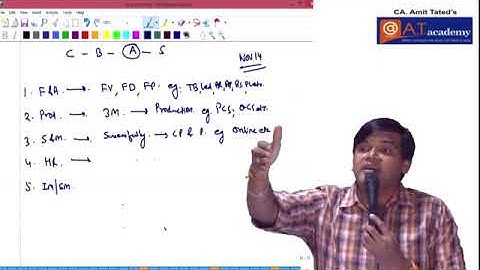 CA. Amit Tated's
@A.T. academy
C - B - A - S
Nov 14
1. F&A → FV, FD, FP eg. TB, Led, AR, AP, BS, P&L etc.
2. Prod. → 3M → Production eg. PCS, QCS etc.
3. S&M → Successfully → CP & P. eg Online etc
4. HR →
5. In/Sm.